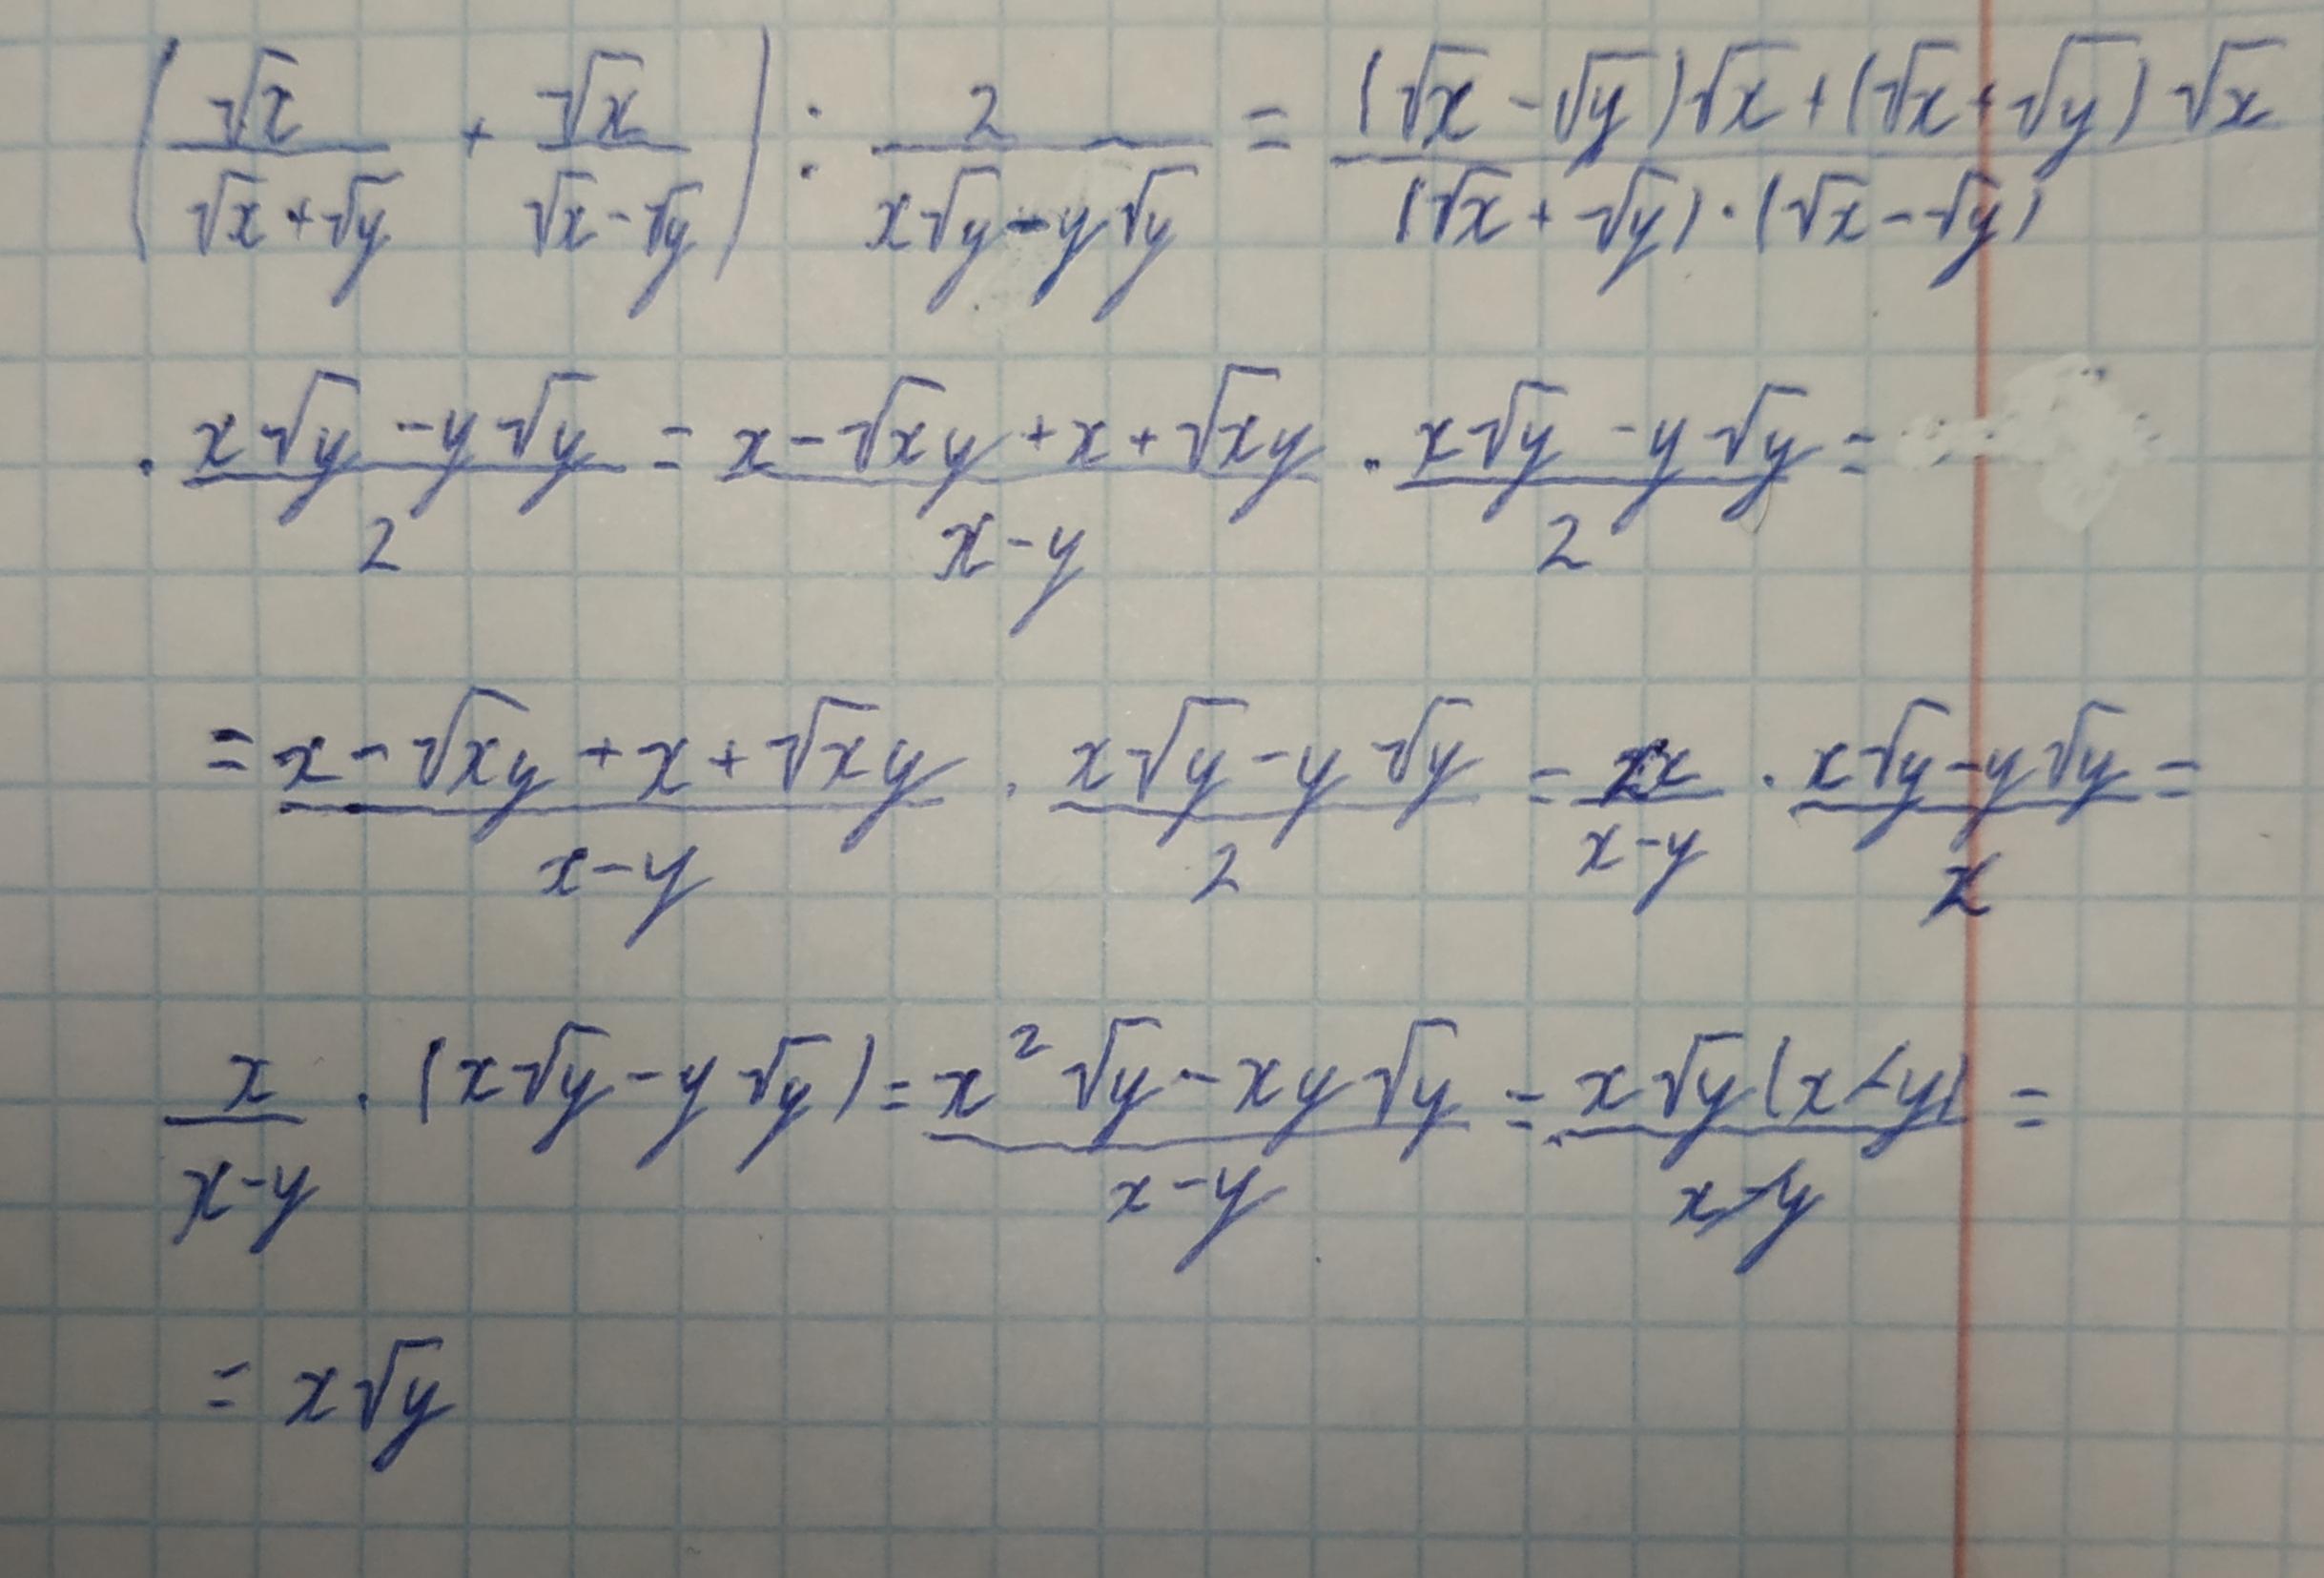 (√x/(√x+√y) + √x/(√x-√y)) : 2/(x√y-y√y) = ((√x-√y)√x+(√x+√y)√x)/((√x+√y)·(√x-√y))
· (x√y-y√y)/2 = (x-√xy+x+√xy)/(x-y) · (x√y-y√y)/2 =
= (x-√xy+x+√xy)/(x-y) · (x√y-y√y)/2 = 2x/(x-y) · (x√y-y√y)/2 =
x/(x-y) · (x√y-y√y) = (x²√y-xy√y)/(x-y) = x√y(x-y)/(x-y) =
= x√y